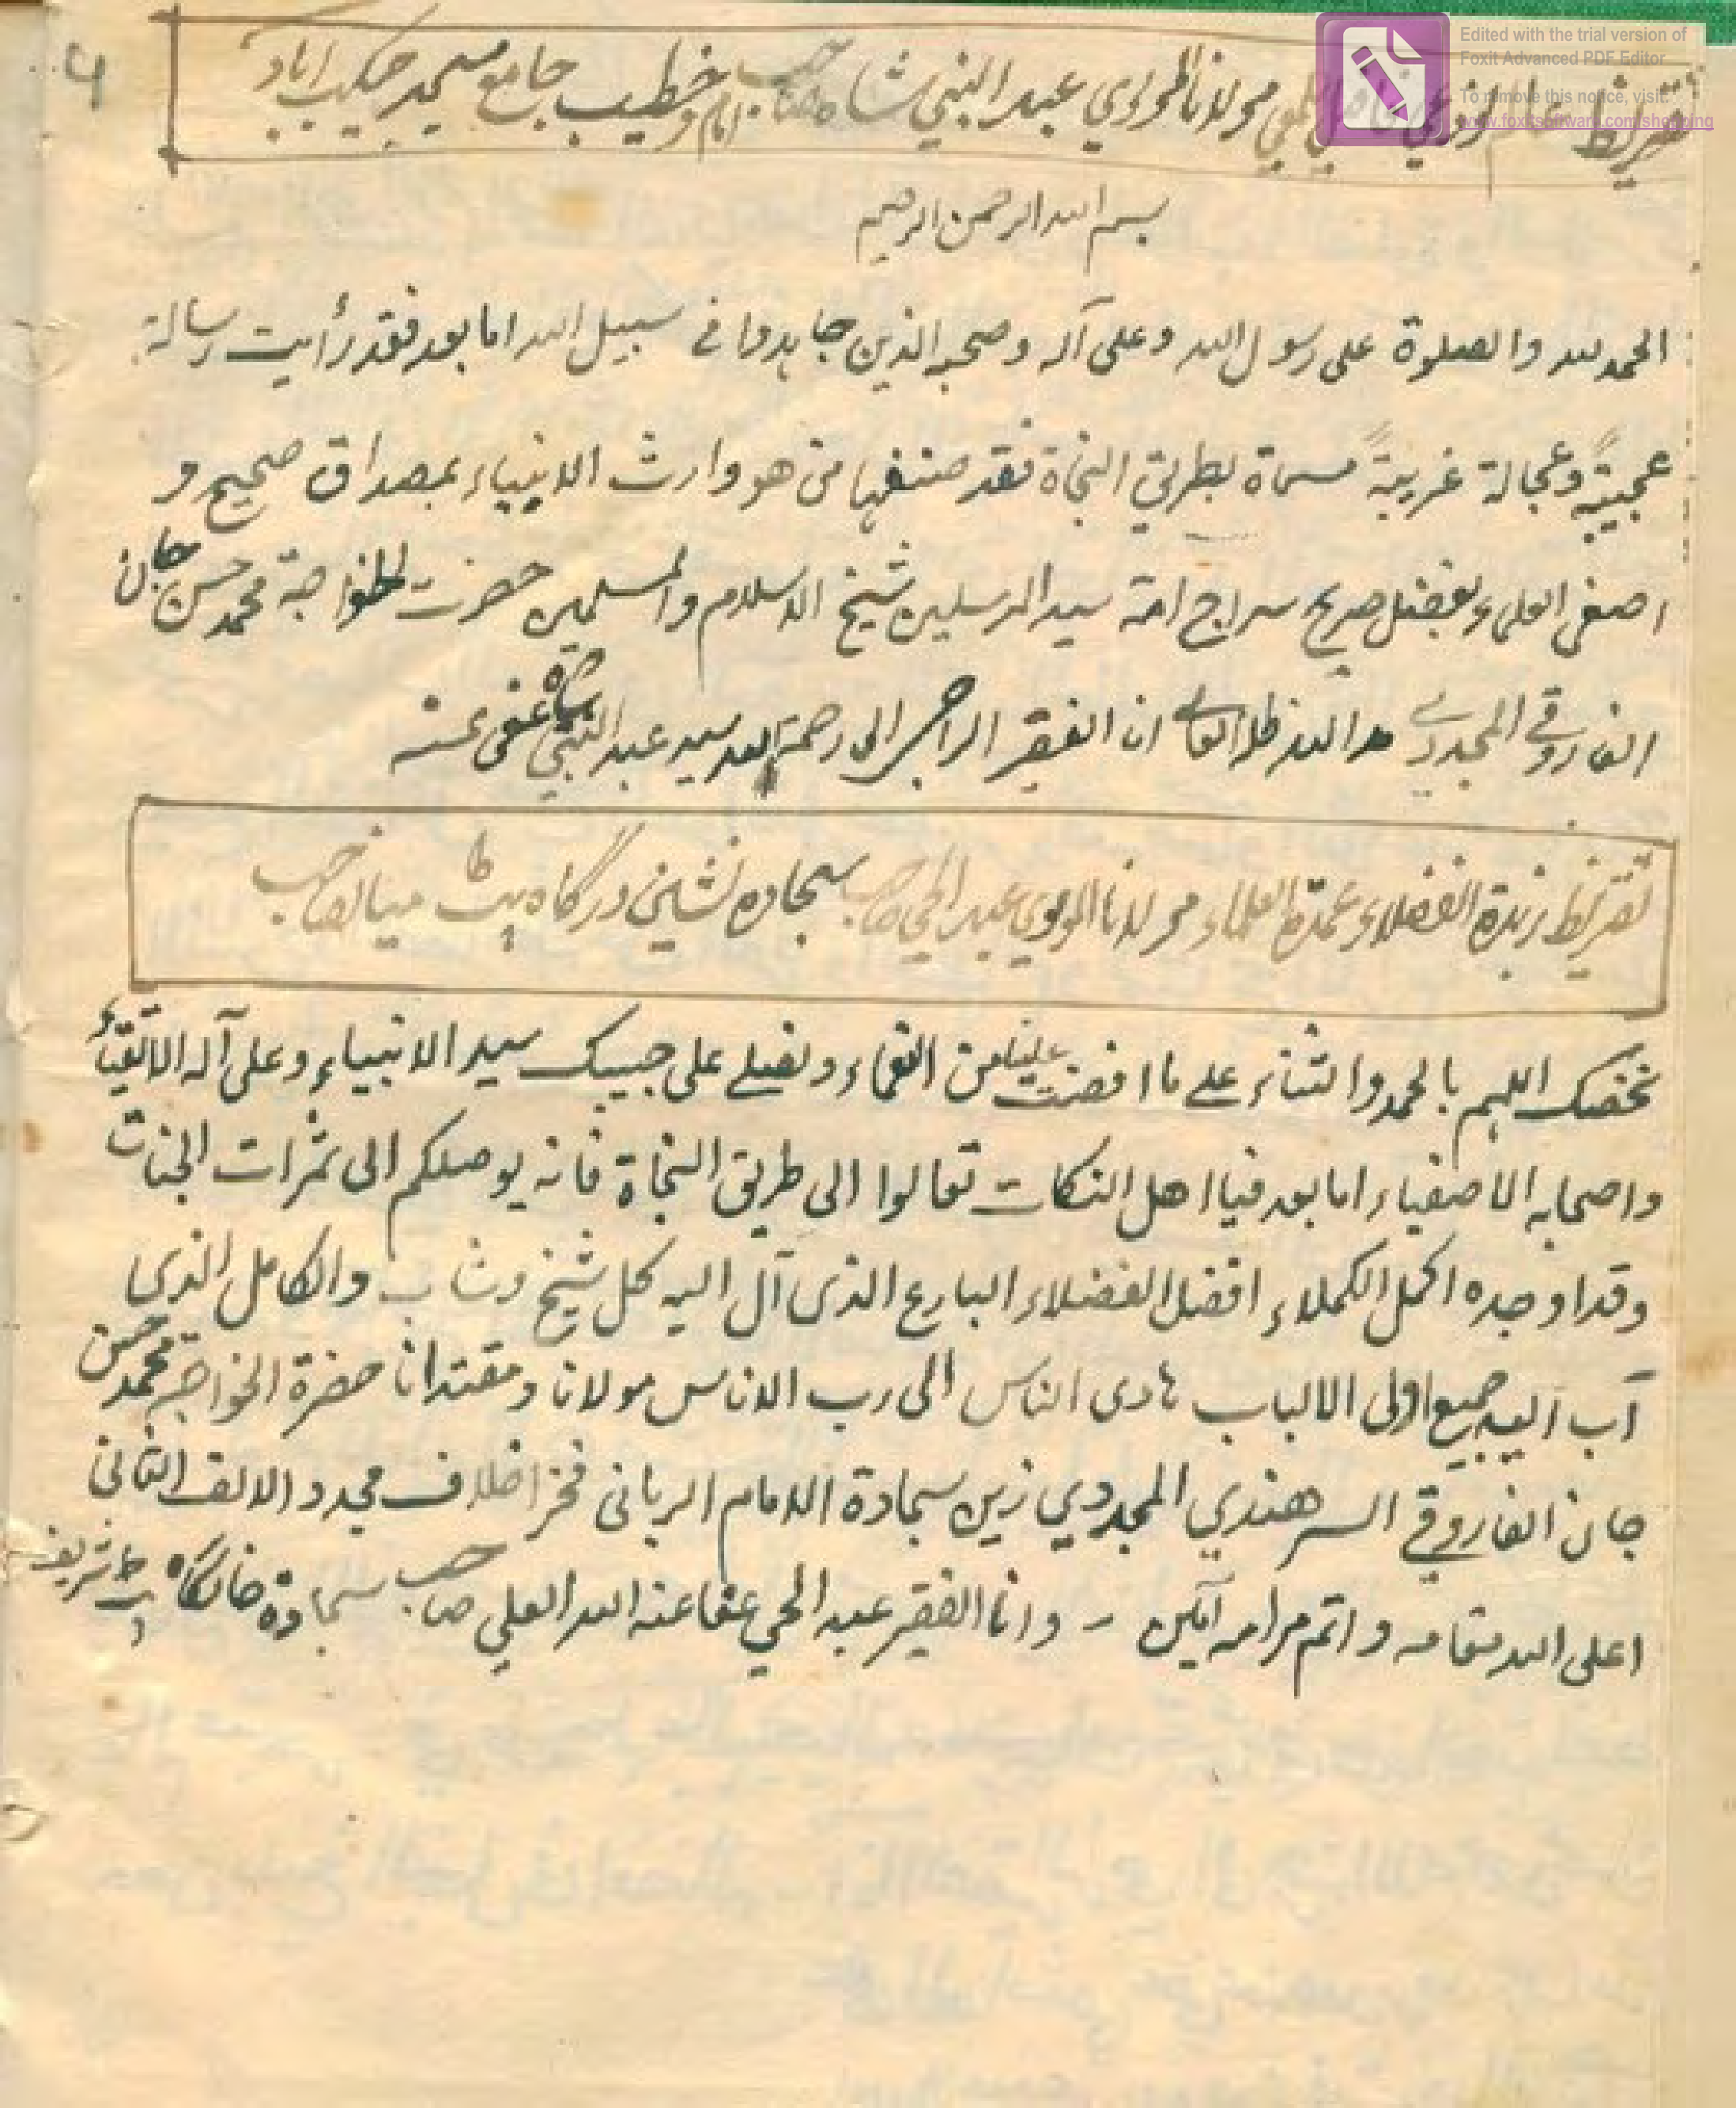 ۴
Edited with the trial version of
Foxit Advanced PDF Editor
To remove this notice, visit:
www.foxitsoftware.com/shopping
تقریظ مولانا المولوي عبد النبي شاه صاحب امام و خطیب جامع مسجد جیکب اباد
بسم الله الرحمن الرحیم
الحمد لله والصلوة علی رسول الله وعلی آله وصحبه الذین جاهدوا فی سبیل الله اما بعد فقد رأیت رسالة
عجیبةً وعجالة غریبةً مسماة بطریق النجاة فقد صنفها من هو وارث الانبیاء بمصداق صحیح و
اصفی العلماء بفضل صریح سراج امة سید المرسلین شیخ الاسلام والمسلمین حضرت الخواجة محمد حسن جان
الفاروقي المجددي مد الله ظله العالی انا الفقیر الراجی الی رحمة الله سید عبد النبي شاه عفی عنه
تقریظ زبدة الفضلاء وعمدة العلماء مولانا المولوي عبد الحي صاحب سجاده نشین درگاه پٹ میان صاحب
نخصک اللهم بالحمد والثناء علے ما افضت علینا من النعماء ونصلے علی حبیبک سید الانبیاء وعلی آله الاتقیاء
واصحابه الاصفیاء اما بعد فیا اهل النکات تعالوا الی طریق النجاة فانه یوصلکم الی ثمرات الجنات
وقد اوجده اکمل الکملاء افضل الفضلاء البارع الذی آل الیه کل شیخ وشاب والکامل الذی
آب الیه جمیع اولی الالباب هادی الناس الی رب الاناس مولانا ومقتدانا حضرة الخواجه محمد حسن
جان الفاروقي السرهندي المجددي زین سجادة الامام الربانی فخر اخلاف مجدد الالف الثانی
اعلی الله مقامه واتم مرامه آمین - وانا الفقیر عبد الحي عفا عنه الله العلي صاحب سجادة خانگاه پٹ شریف